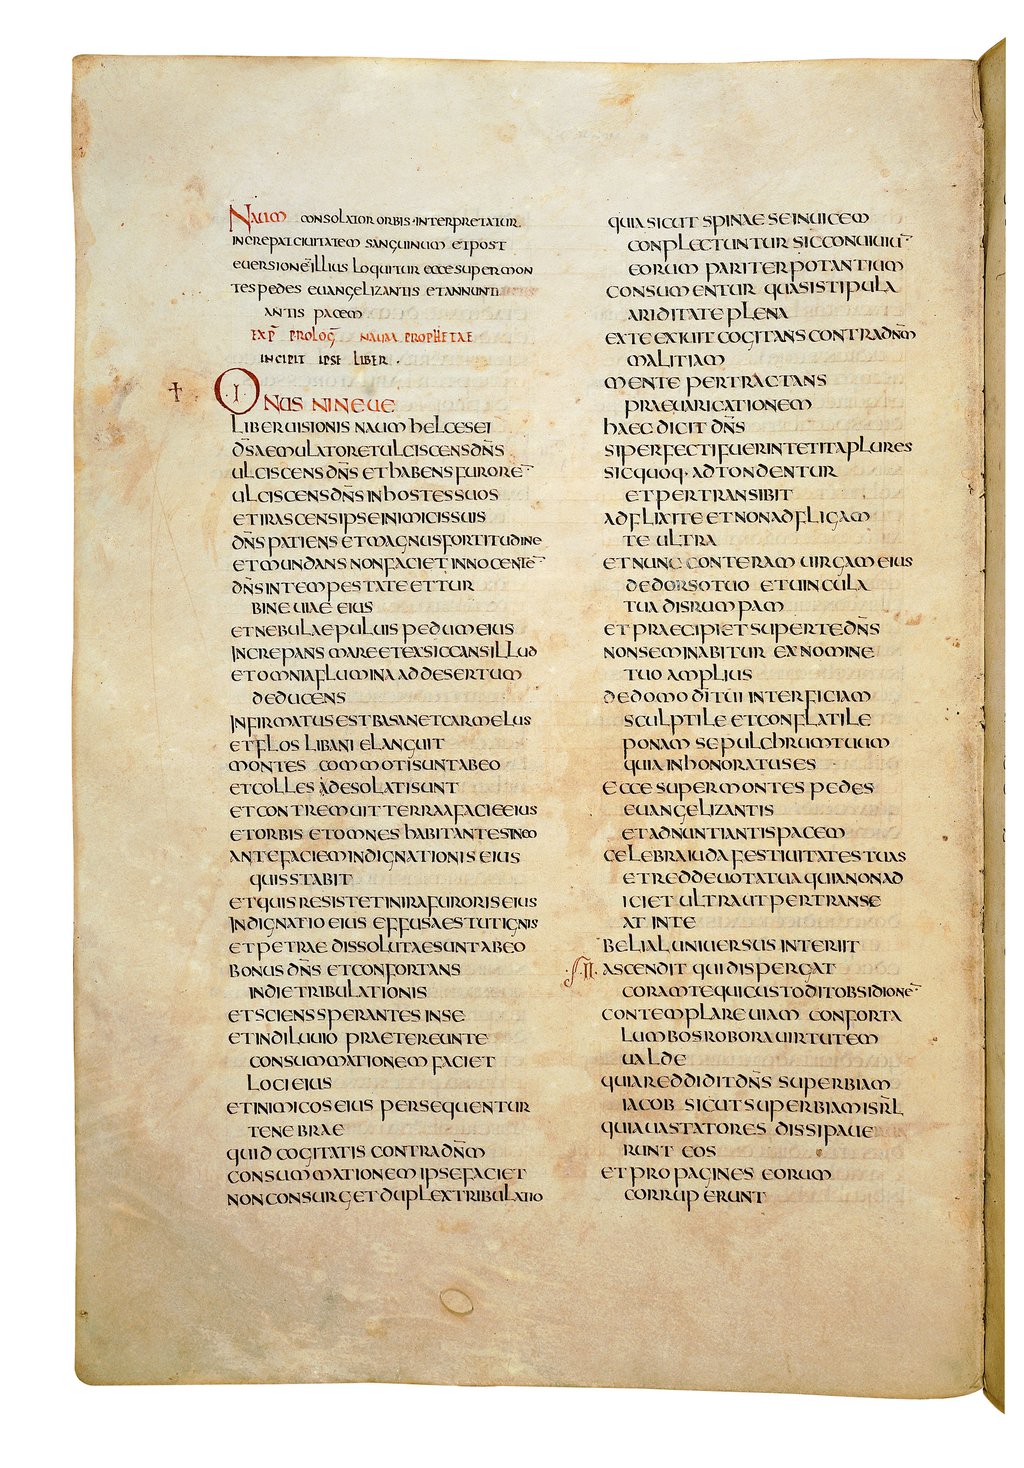 NAUM CONSOLATOR ORBIS·INTERPRETATUR.
INCREPAT CIUITATEM SANGUINUM ET POST
EUERSIONĒ ILLIUS LOQUITUR ECCE SUPER MON
TES PEDES EUANGELIZANTIS ET ANNUNTI
ANTIS PACEM
EXP̄ PROLOḠ NAUM PROPHETAE
INCIPIT IPSE LIBER .
·I· ONUS NINEUE
LIBER UISIONIS NAUM HELCESEI
D̄S AEMULATOR ET ULCISCENS DN̄S
ULCISCENS DN̄S ET HABENS FURORE¯
ULCISCENS DN̄S IN HOSTES SUOS
ET IRASCENS IPSE INIMICIS SUIS
DN̄S PATIENS ET MAGNUS FORTITUDINE
ET MUNDANS NON FACIET INNOCENTE¯
DN̄S IN TEMPESTATE ET TUR
BINE UIAE EIUS
ET NEBULAE PULUIS PEDUM EIUS
INCREPANS MARE ET EXSICCANS ILLUD
ET OMNIA FLUMINA AD DESERTUM
DEDUCENS
INFIRMATUS EST BASAN ET CARMELUS
ET FLOS LIBANI ELANGUIT
MONTES COMMOTI SUNT AB EO
ET COLLES ADESOLATI SUNT
ET CONTREMUIT TERRA A FACIE EIUS
ET ORBIS ET OMNES HABITANTES IN EO
ANTE FACIEM INDIGNATIONIS EIUS
QUIS STABIT
ET QUIS RESISTET IN IRA FURORIS EIUS
INDIGNATIO EIUS EFFUSA EST UT IGNIS
ET PETRAE DISSOLUTAE SUNT AB EO
BONUS DN̄S ET CONFORTANS
IN DIE TRIBULATIONIS
ET SCIENS SPERANTES IN SE
ET IN DILUUIO PRAETEREUNTE
CONSUMMATIONEM FACIET
LOCI EIUS
ET INIMICOS EIUS PERSEQUENTUR
TENEBRAE
QUID COGITATIS CONTRA DN̄M
CONSUMMATIONEM IPSE FACIET
NON CONSURGET DUPLEX TRIBULATIO
QUIA SICUT SPINAE SE INUICEM
CONPLECTUNTUR SIC CONUIUIU¯
EORUM PARITER POTANTIUM
CONSUMENTUR QUASI STIPULA
ARIDITATE PLENA
EX TE EXIUIT COGITANS CONTRA DN̄M
MALITIAM
MENTE PERTRACTANS
PRAEUARICATIONEM
HAEC DICIT DN̄S
SI PERFECTI FUERINT ET ITA PLURES
SIC QUOQ· ADTONDENTUR
ET PERTRANSIBIT
ADFLIXI TE ET NON ADFLIGAM
TE ULTRA
ET NUNC CONTERAM UIRGAM EIUS
DE DORSO TUO ET UINCULA
TUA DISRUMPAM
ET PRAECIPIET SUPER TE DN̄S
NON SEMINABITUR EX NOMINE
TUO AMPLIUS
DE DOMO DĪ TUI INTERFICIAM
SCULPTILE ET CONFLATILE
PONAM SEPULCHRUM TUUM
QUIA INHONORATUS ES
ECCE SUPER MONTES PEDES
EUANGELIZANTIS
ET ADNUNTIANTIS PACEM
CELEBRA IUDA FESTIUITATES TUAS
ET REDDE UOTA TUA QUIA NON AD
ICIET ULTRA UT PERTRANSE
AT IN TE
BELIAL UNIUERSUS INTERIIT
·II· ASCENDIT QUI DISPERGAT
CORAM TE QUI CUSTODIT OBSIDIONE¯
CONTEMPLARE UIAM CONFORTA
LUMBOS ROBORA UIRTUTEM
UALDE
QUIA REDDIDIT DN̄S SUPERBIAM
IACOB SICUT SUPERBIAM ISRL̄
QUIA UASTATORES DISSIPAUE
RUNT EOS
ET PROPAGINES EORUM
CORRUPERUNT